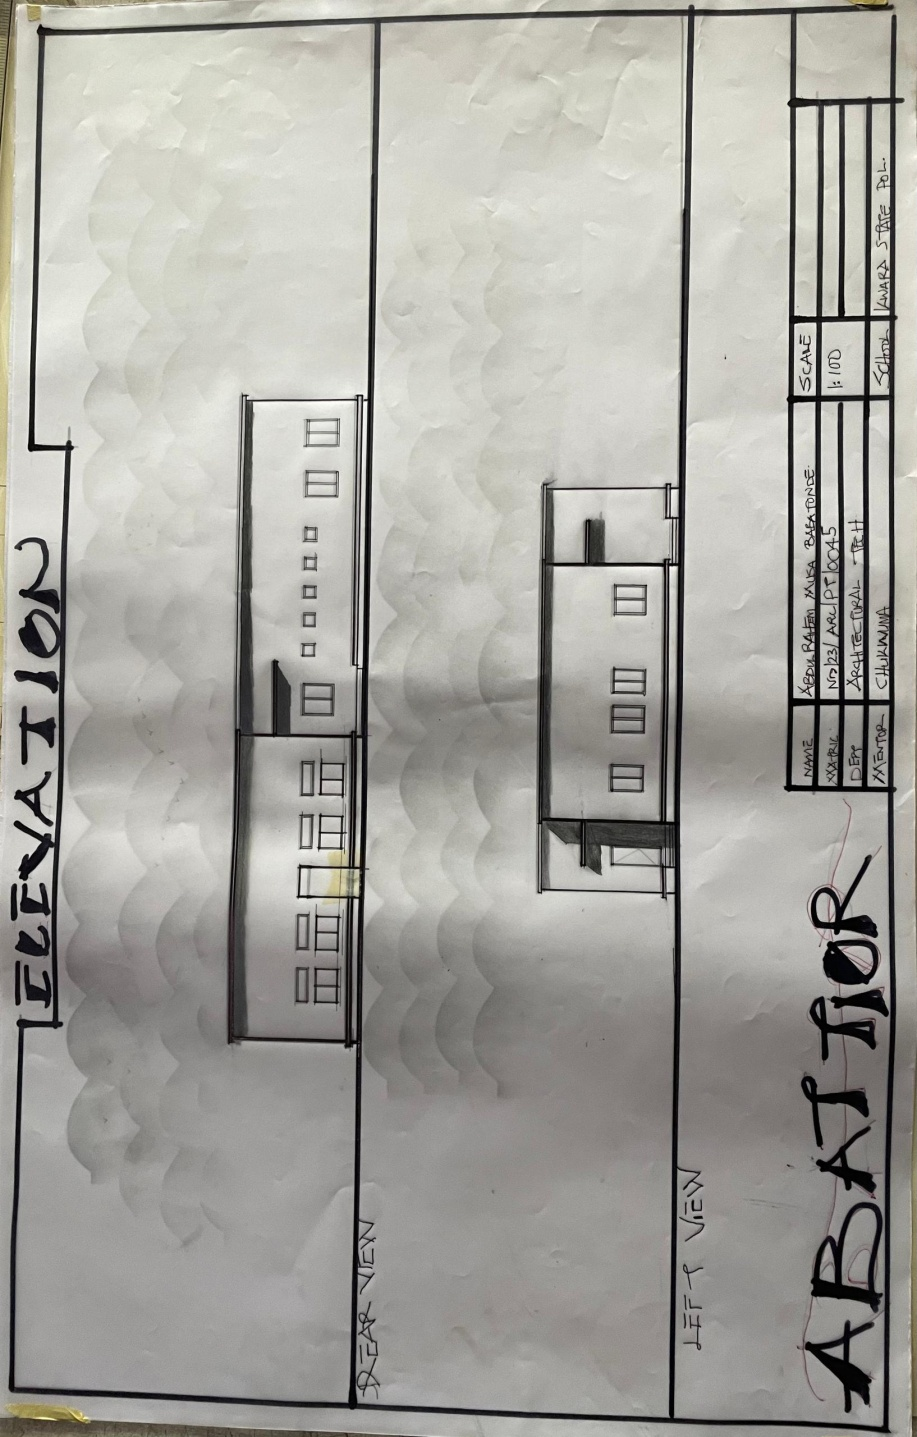 ELEVATION
REAR VIEW
LEFT VIEW
ABATTIOR
NAME ABDULRAHEM MUSA BABATONDE. SCALE
MATRIC ND/23/ARC/PT/0045 1:100
DEPT ARCHITECTURAL TECH
MENTOR CHUKWUMA SCHOOL KWARA STATE POL.